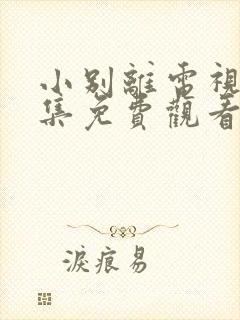 小别離電視
集免費觀看
淚痕易